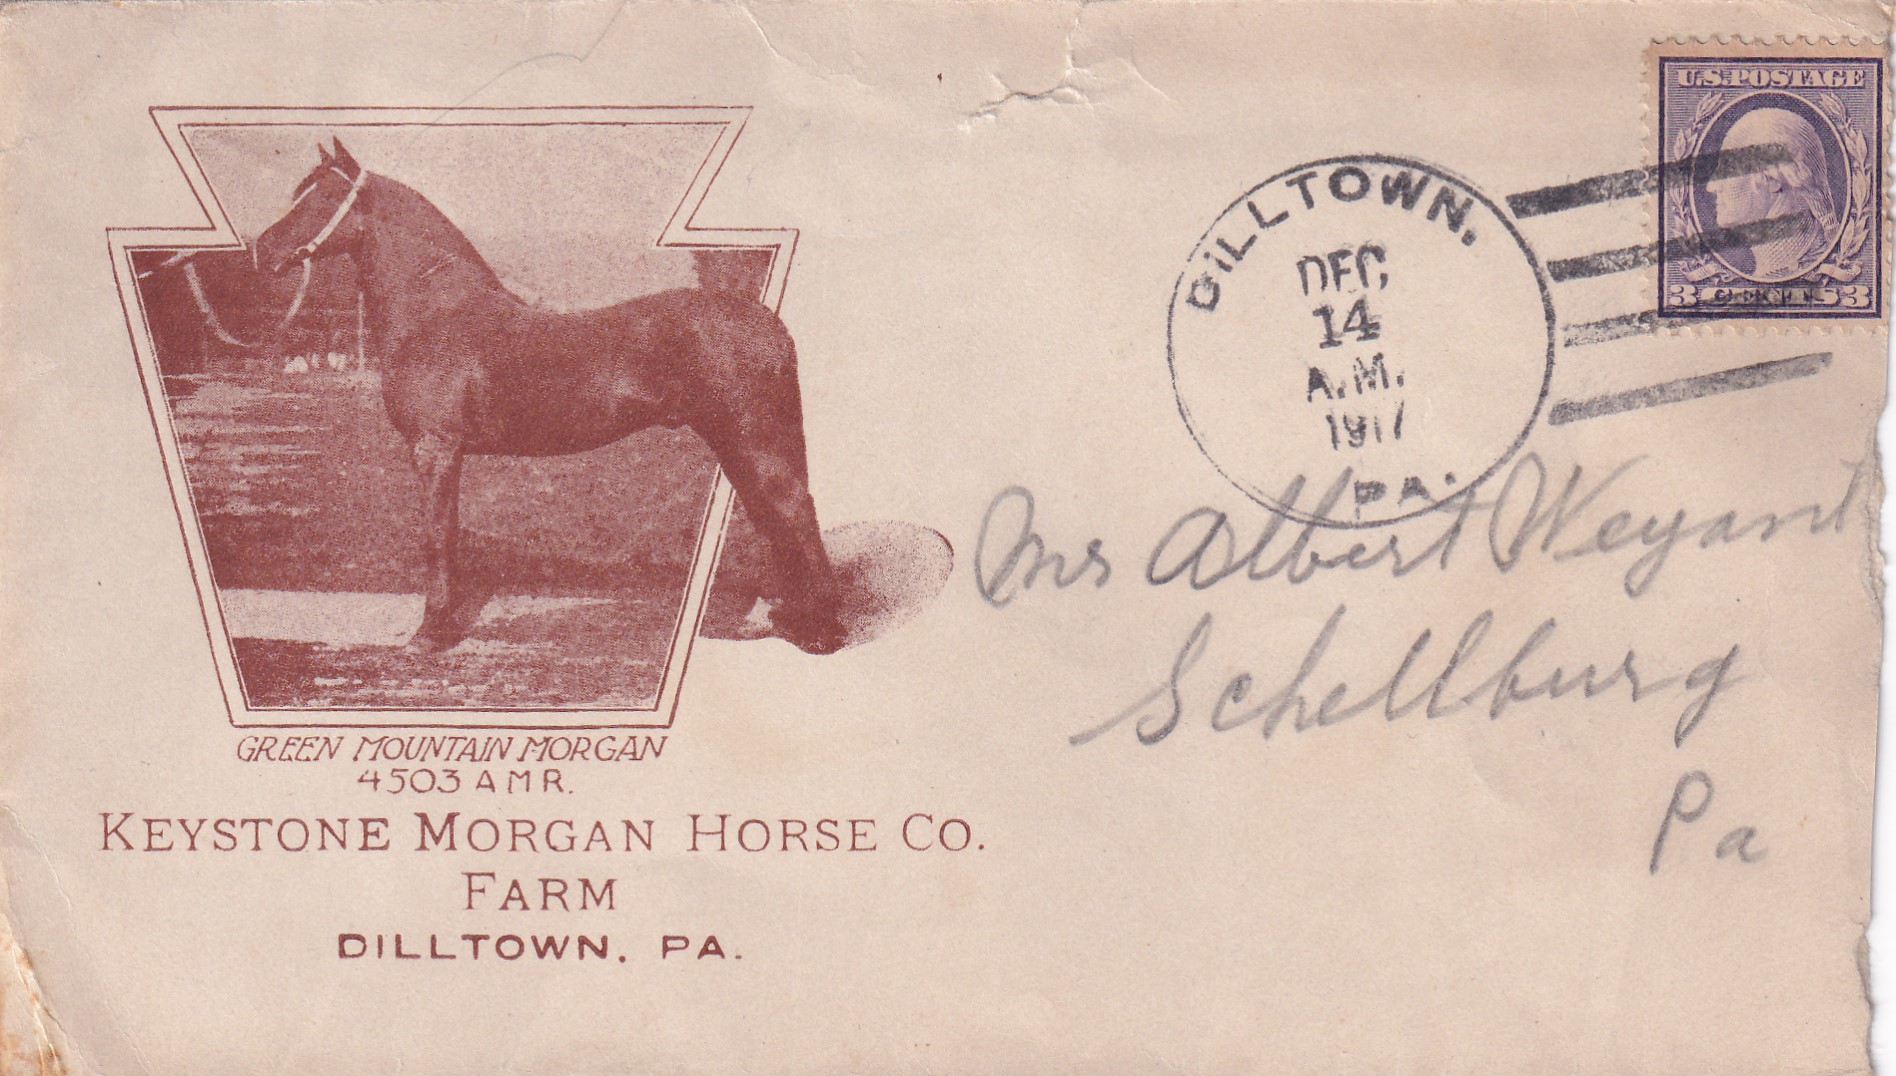 GREEN MOUNTAIN MORGAN
4503 AMR.
KEYSTONE MORGAN HORSE CO.
FARM
DILLTOWN, PA.
U.S. POSTAGE
3 3
DILLTOWN.
DEC
14
A.M.
1917
PA.
Mr Albert Weyant
Schellburg
Pa